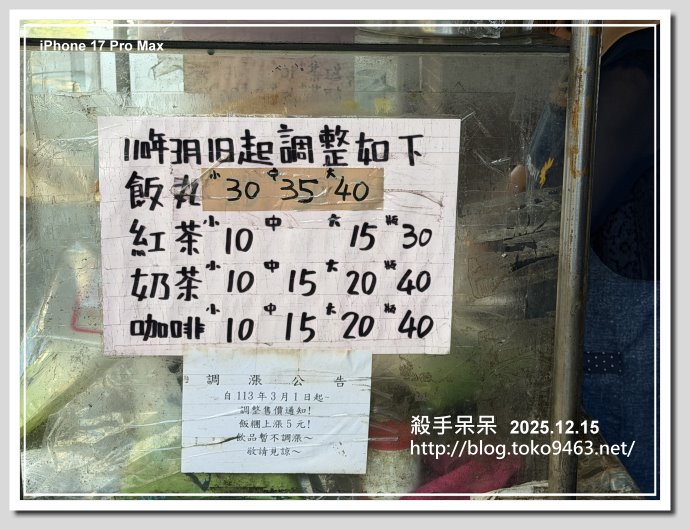 iPhone 17 Pro Max
110年3月1日起調整如下
飯丸 小30 中35 大40
紅茶 小10 中 大15 瓶30
奶茶 小10 中15 大20 瓶40
咖啡 小10 中15 大20 瓶40
調漲公告
自113年3月1日起~
調整售價通知!
飯糰上漲5元!
飲品暫不調漲~
敬請見諒~
殺手呆呆 2025.12.15
http://blog.toko9463.net/